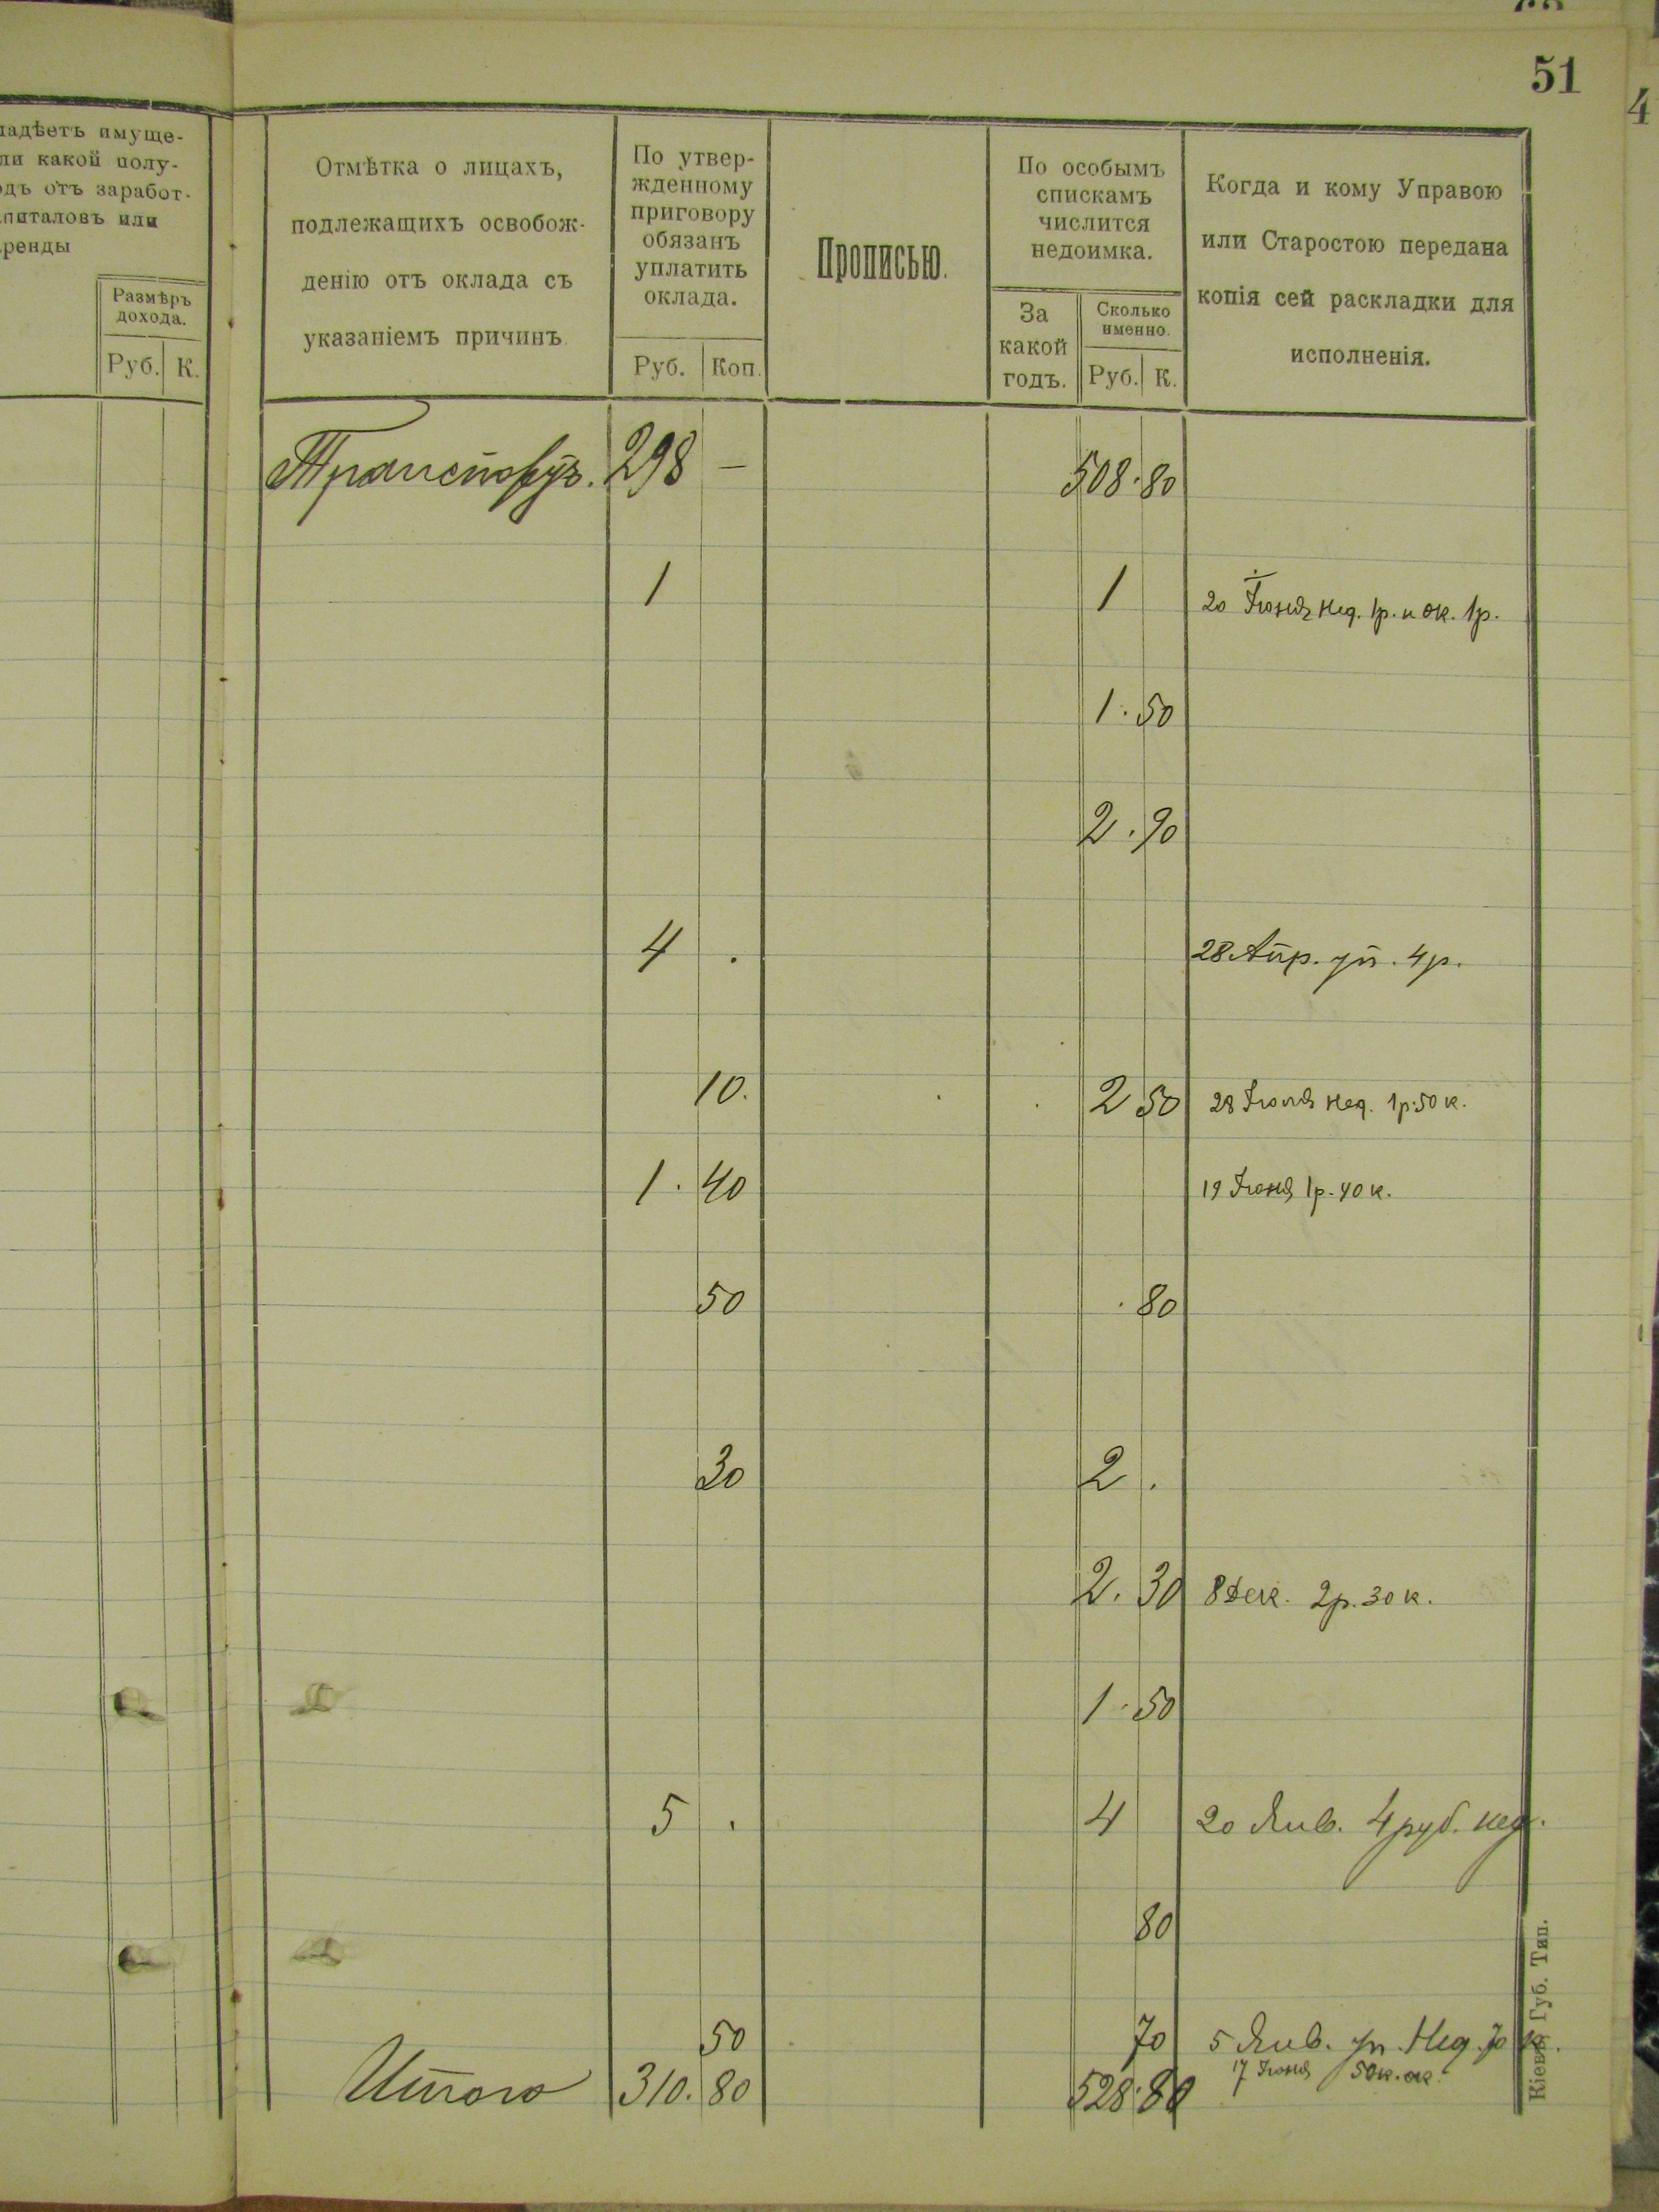 51
4
ладѣетъ имуще-
ли какой полу-
одъ отъ заработ-
апиталовъ или
аренды
Размѣръ
дохода.
Руб. К.
Отмѣтка о лицахъ,
подлежащихъ освобож-
денію отъ оклада съ
указаніемъ причинъ.
По утвер-
жденному
приговору
обязанъ
уплатить
оклада.
Руб. Коп.
Прописью.
По особымъ
спискамъ
числится
недоимка.
За
какой
годъ.
Сколько
именно.
Руб. К.
Когда и кому Управою
или Старостою передана
копія сей раскладки для
исполненія.
Транспортъ. 298 — 508.80
1 1 20 Іюня Нед. 1р. и ок. 1р.
1.50
2.90
4 . 28 Апр. уп. 4р.
10. 2 50 28 Іюля Нед. 1р.50к.
1.40 19 Іюня 1р.40к.
50 .80
30 2 .
2.30 8 Дек. 2р.30к.
1.50
5 . 4 20 Янв. 4 руб. нед.
80
50 70 5 Янв. уп. Нед. 70 к.
17 Іюня 50к. ок.
Итого 310.80 528.80
Кіевъ, Губ. Тип.